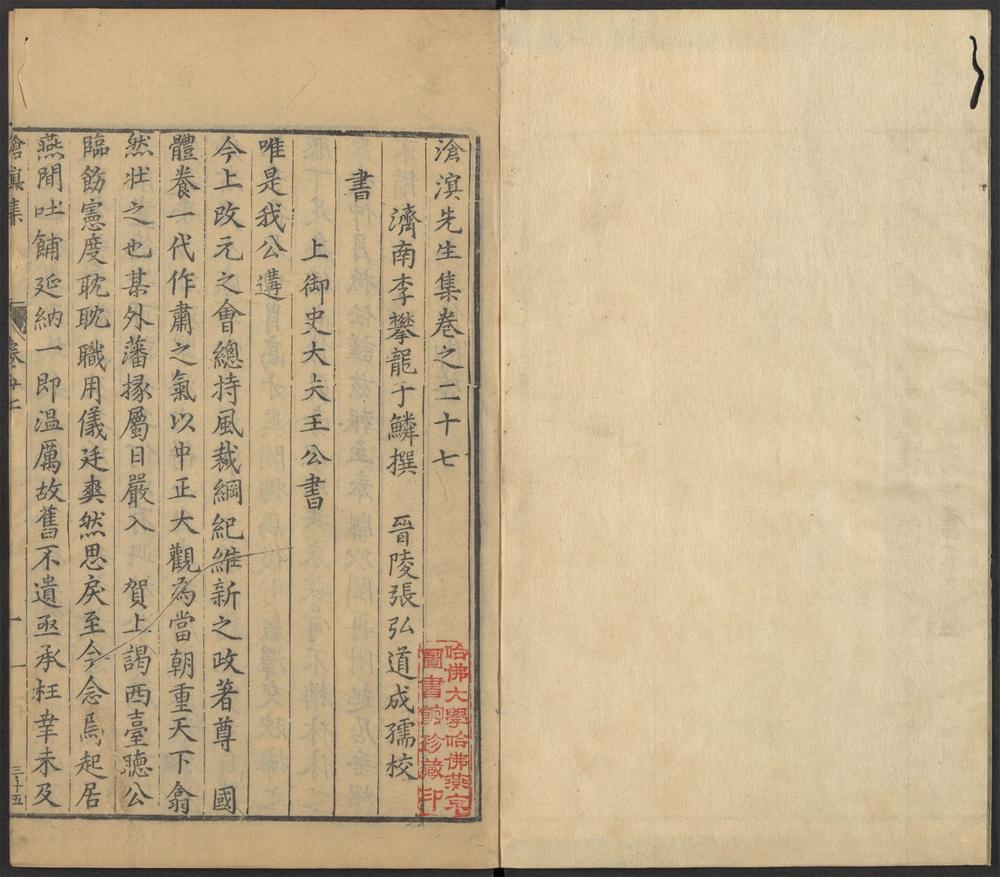 滄溟先生集卷之二十七
濟南李攀龍于鱗撰 晉陵張弘道成孺校
書
上御史大夫王公書
唯是我公遘
今上改元之會總持風裁綱紀維新之政著尊 國
體養一代作肅之氣以中正大觀為當朝重天下翕
然壯之也某外藩掾屬日嚴入 賀上謁西臺聽公
臨飭憲度眈眈職用儀廷爽然思戾至今念焉起居
燕閒吐餔延納一即温厲故舊不遺亟承枉幸未及
滄溟集 卷廿七 一 三十五
哈佛大學哈佛燕京
圖書館珍藏印